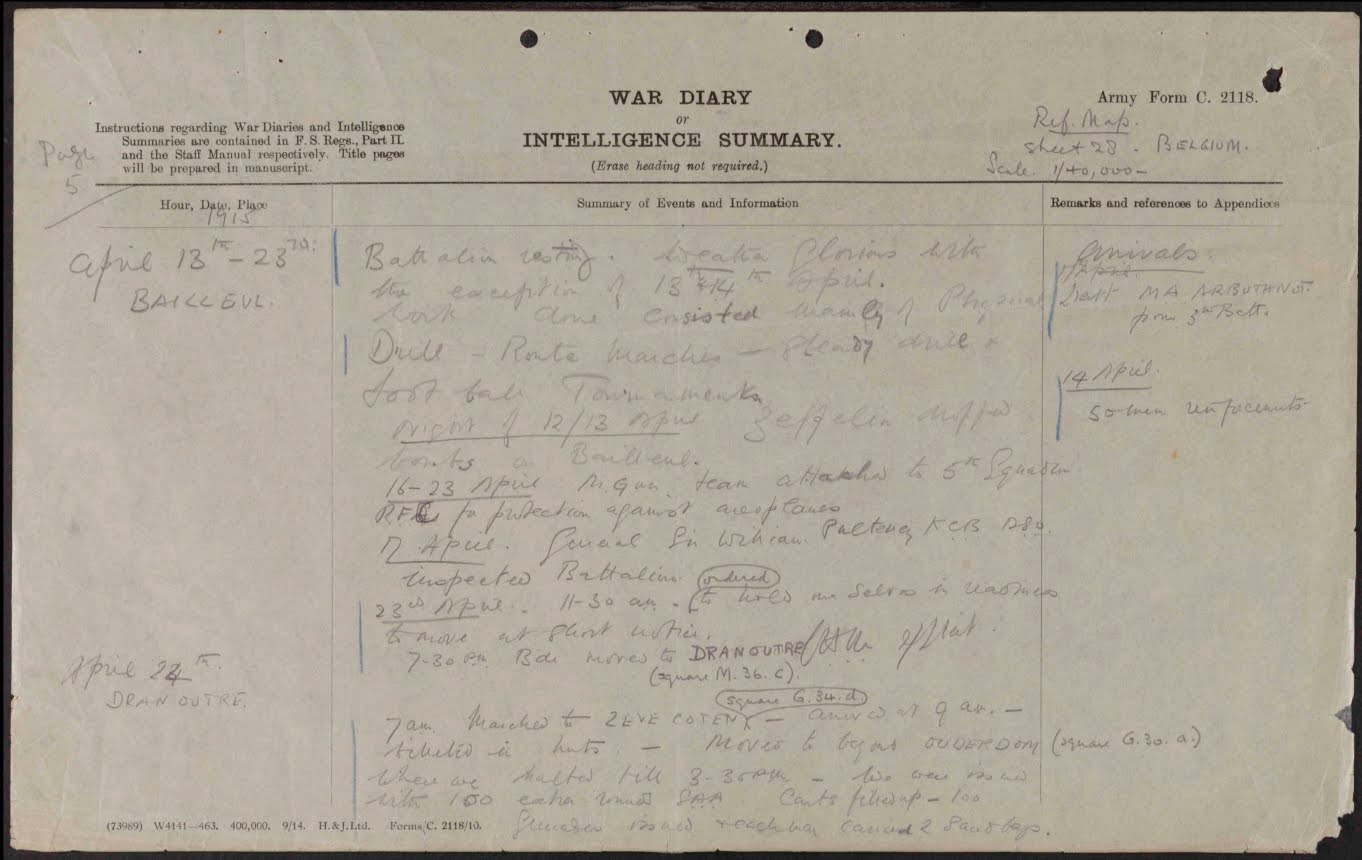 WAR DIARY
or
INTELLIGENCE SUMMARY.
(Erase heading not required.)
Army Form C. 2118.
Instructions regarding War Diaries and Intelligence
Summaries are contained in F. S. Regs., Part II.
and the Staff Manual respectively. Title pages
will be prepared in manuscript.
Page
5
Ref. Map.
Sheet 28. BELGIUM.
Scale. 1/40,000-
Hour, Date, Place
1915
Summary of Events and Information
Remarks and references to Appendices
April 13th - 23rd:
BAILLEUL.
Battalion resting. Weather Glorious with
the exception of 13th + 14th April.
Work done consisted mainly of Physical
Drill - Route Marches - Steady drill +
Foot ball Tournaments
Night of 12/13 April Zeppelin dropped
bombs on Bailleul.
16-23 April M. Gun team attached to 5th Squadron
R.F.C for protection against aeroplanes
17 April. General Sir William Pulteney KCB DSO.
inspected Battalion.
23rd April. 11-30 am. (ordered) to hold our selves in readiness
to move at short notice.
7-30 pm Bde moved to DRANOUTRE
(square M. 36. c).
Arrivals.
April.
MA ARBUTHNOT
from 3rd Battn
14 April.
50 men reinforcements
April 24th.
DRANOUTRE.
(square G. 34. d.)
7 am. Marched to ZEVECOTEN - arrived at 9 am. -
billeted in huts. - Moved to beyond OUDERDOM (square G. 30. a.)
where we halted till 3-30 pm - We were issued
with 100 extra rounds SAA Carts filled up - 100
Grenades issued + each man carried 2 Sand bags.
(73989) W4141—463. 400,000. 9/14. H.&J.Ltd. Forms/C. 2118/10.